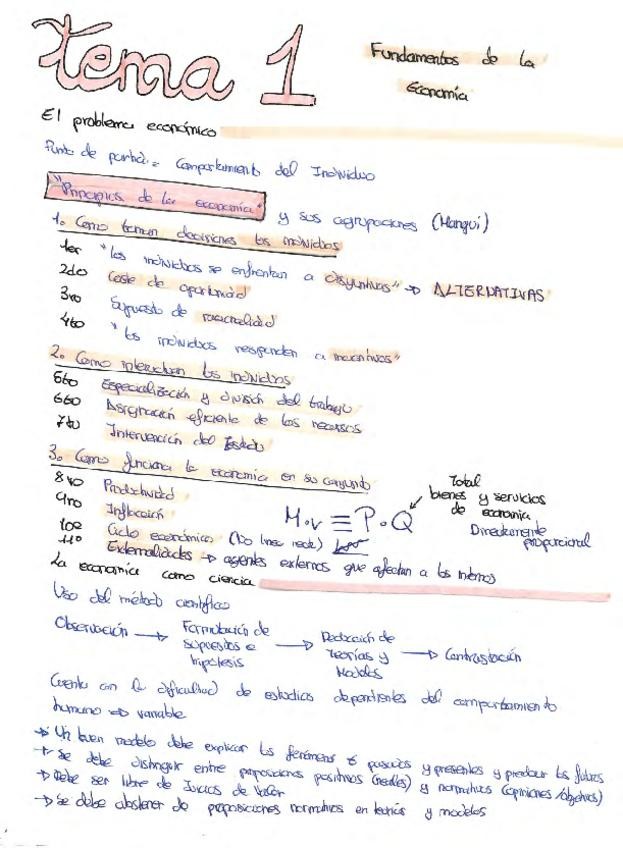 tema 1
Fundamentos de la
Economía
El problema económico
Punto de partida = Comportamiento del Individuo
"Principios de la economía" y sus agrupaciones (Mangui)
1. Como toman decisiones los individuos
1er "los individuos se enfrentan a disyuntivas" → ALTERNATIVAS
2do Coste de oportunidad
3ro Supuesto de racionalidad
4to "los individuos responden a incentivos"
2. Como interactuan los individuos
5to Especialización y división del trabajo
6to Asignación eficiente de los recursos
7to Intervención del Estado
3. Como funciona la economía en su conjunto
8vo Productividad
9no Inflación
M·v ≡ P·Q
Total
bienes y servicios
de economía
Directamente
proporcional
10º Ciclo económico (No linea recta)
11º Externalidades → agentes externos que afectan a los internos
La economía como ciencia
Uso del método científico
Observación → Formulación de supuestos e hipótesis → Deducción de teorías y Modelos → Contrastación
Cuenta con la dificultad de estudios dependientes del comportamiento
humano => variable
→ Un buen modelo debe explicar los fenómenos pasados y presentes y predecir los futuros
→ Se debe distinguir entre proposiciones positivas (reales) y normativas (opiniones/objetivos)
→ Debe ser libre de Juicios de Valor
→ Se debe abstener de proposiciones normativas en teorías y modelos